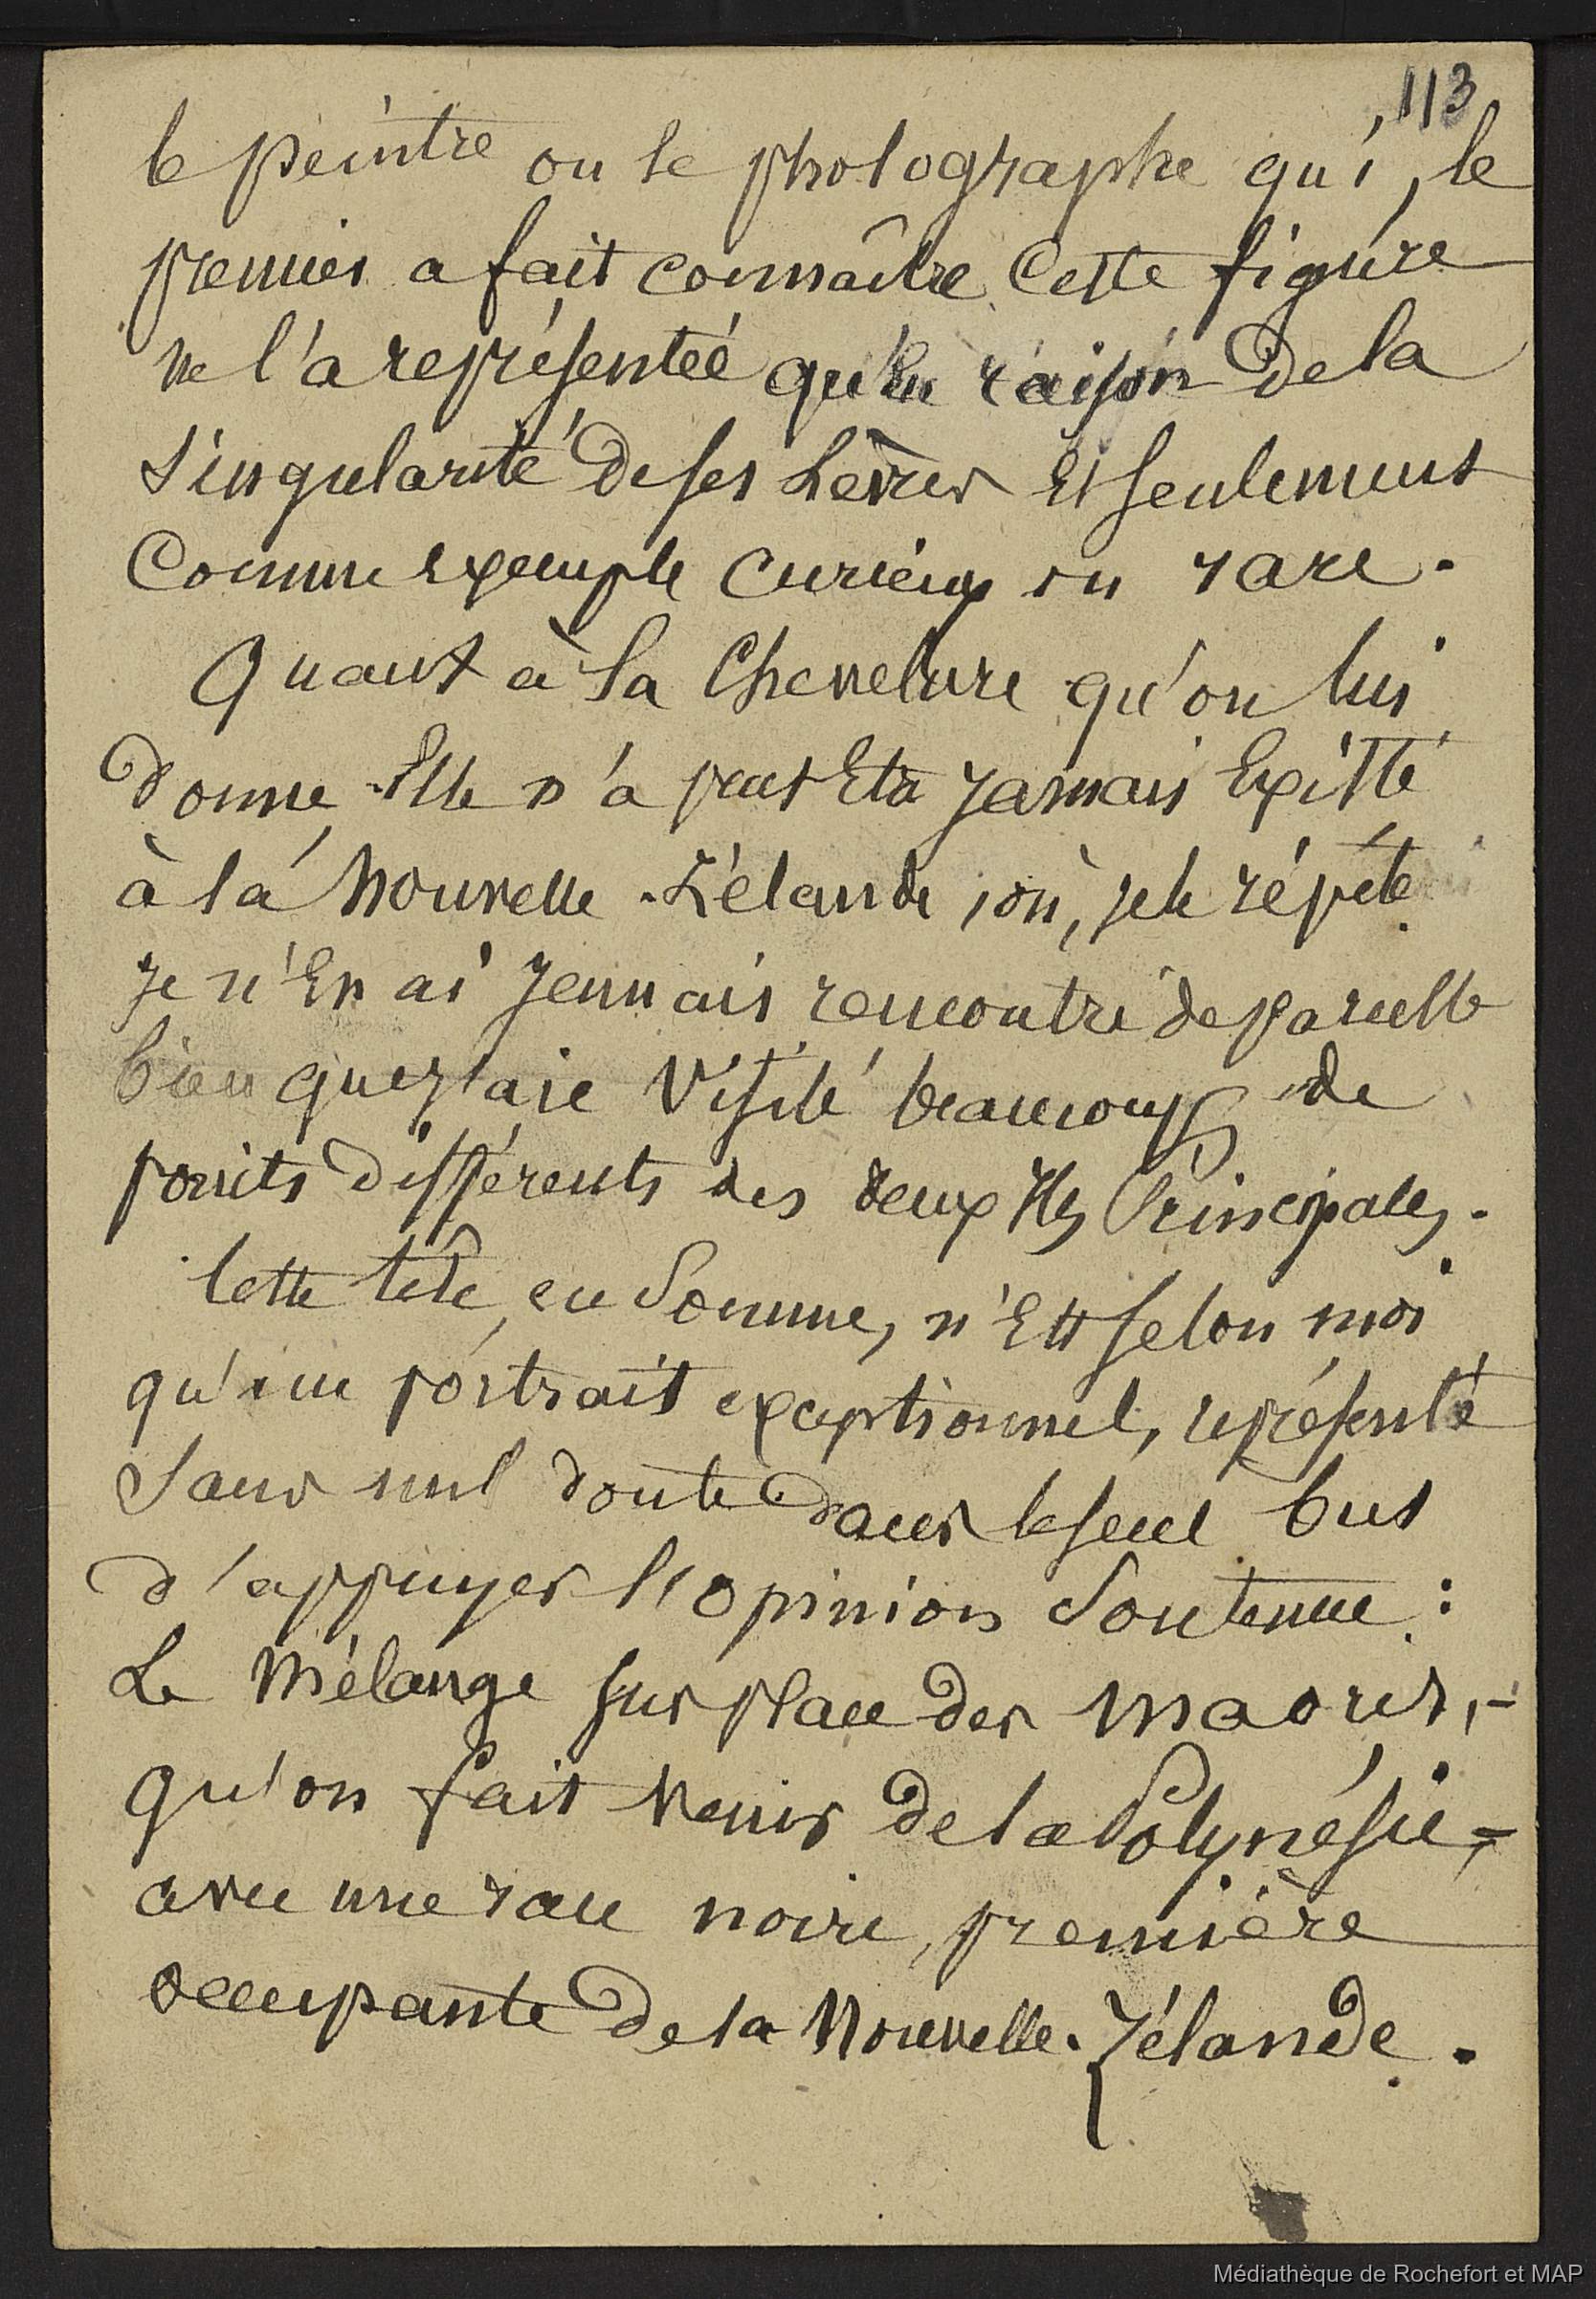 113
le peintre ou le photographe qui, le
premier a fait connaître Cette figure
ne l'a représentée qu'en raison de la
singularité de ses Lèvres Et seulement
Comme exemple curieux ou rare.
Quant à la Chevelure qu'on lui
donne, Elle n'a peut Etre jamais Existé
à la Nouvelle-Zélande, où, je le répète
je n'En ai jamais rencontré de pareille
bien que j'aie Visité beaucoup de
points différents des deux Iles Principales.
Cette tête, en Somme, n'Est selon moi
qu'un portrait exceptionnel, représenté
Sans nul doute dans le seul but
d'appuyer l'opinion Soutenue :
Le Mélange sur place des maoris, -
qu'on fait Venir de la Polynésie, -
avec une race noire, première
occupante de la Nouvelle-Zélande.
Médiathèque de Rochefort et MAP